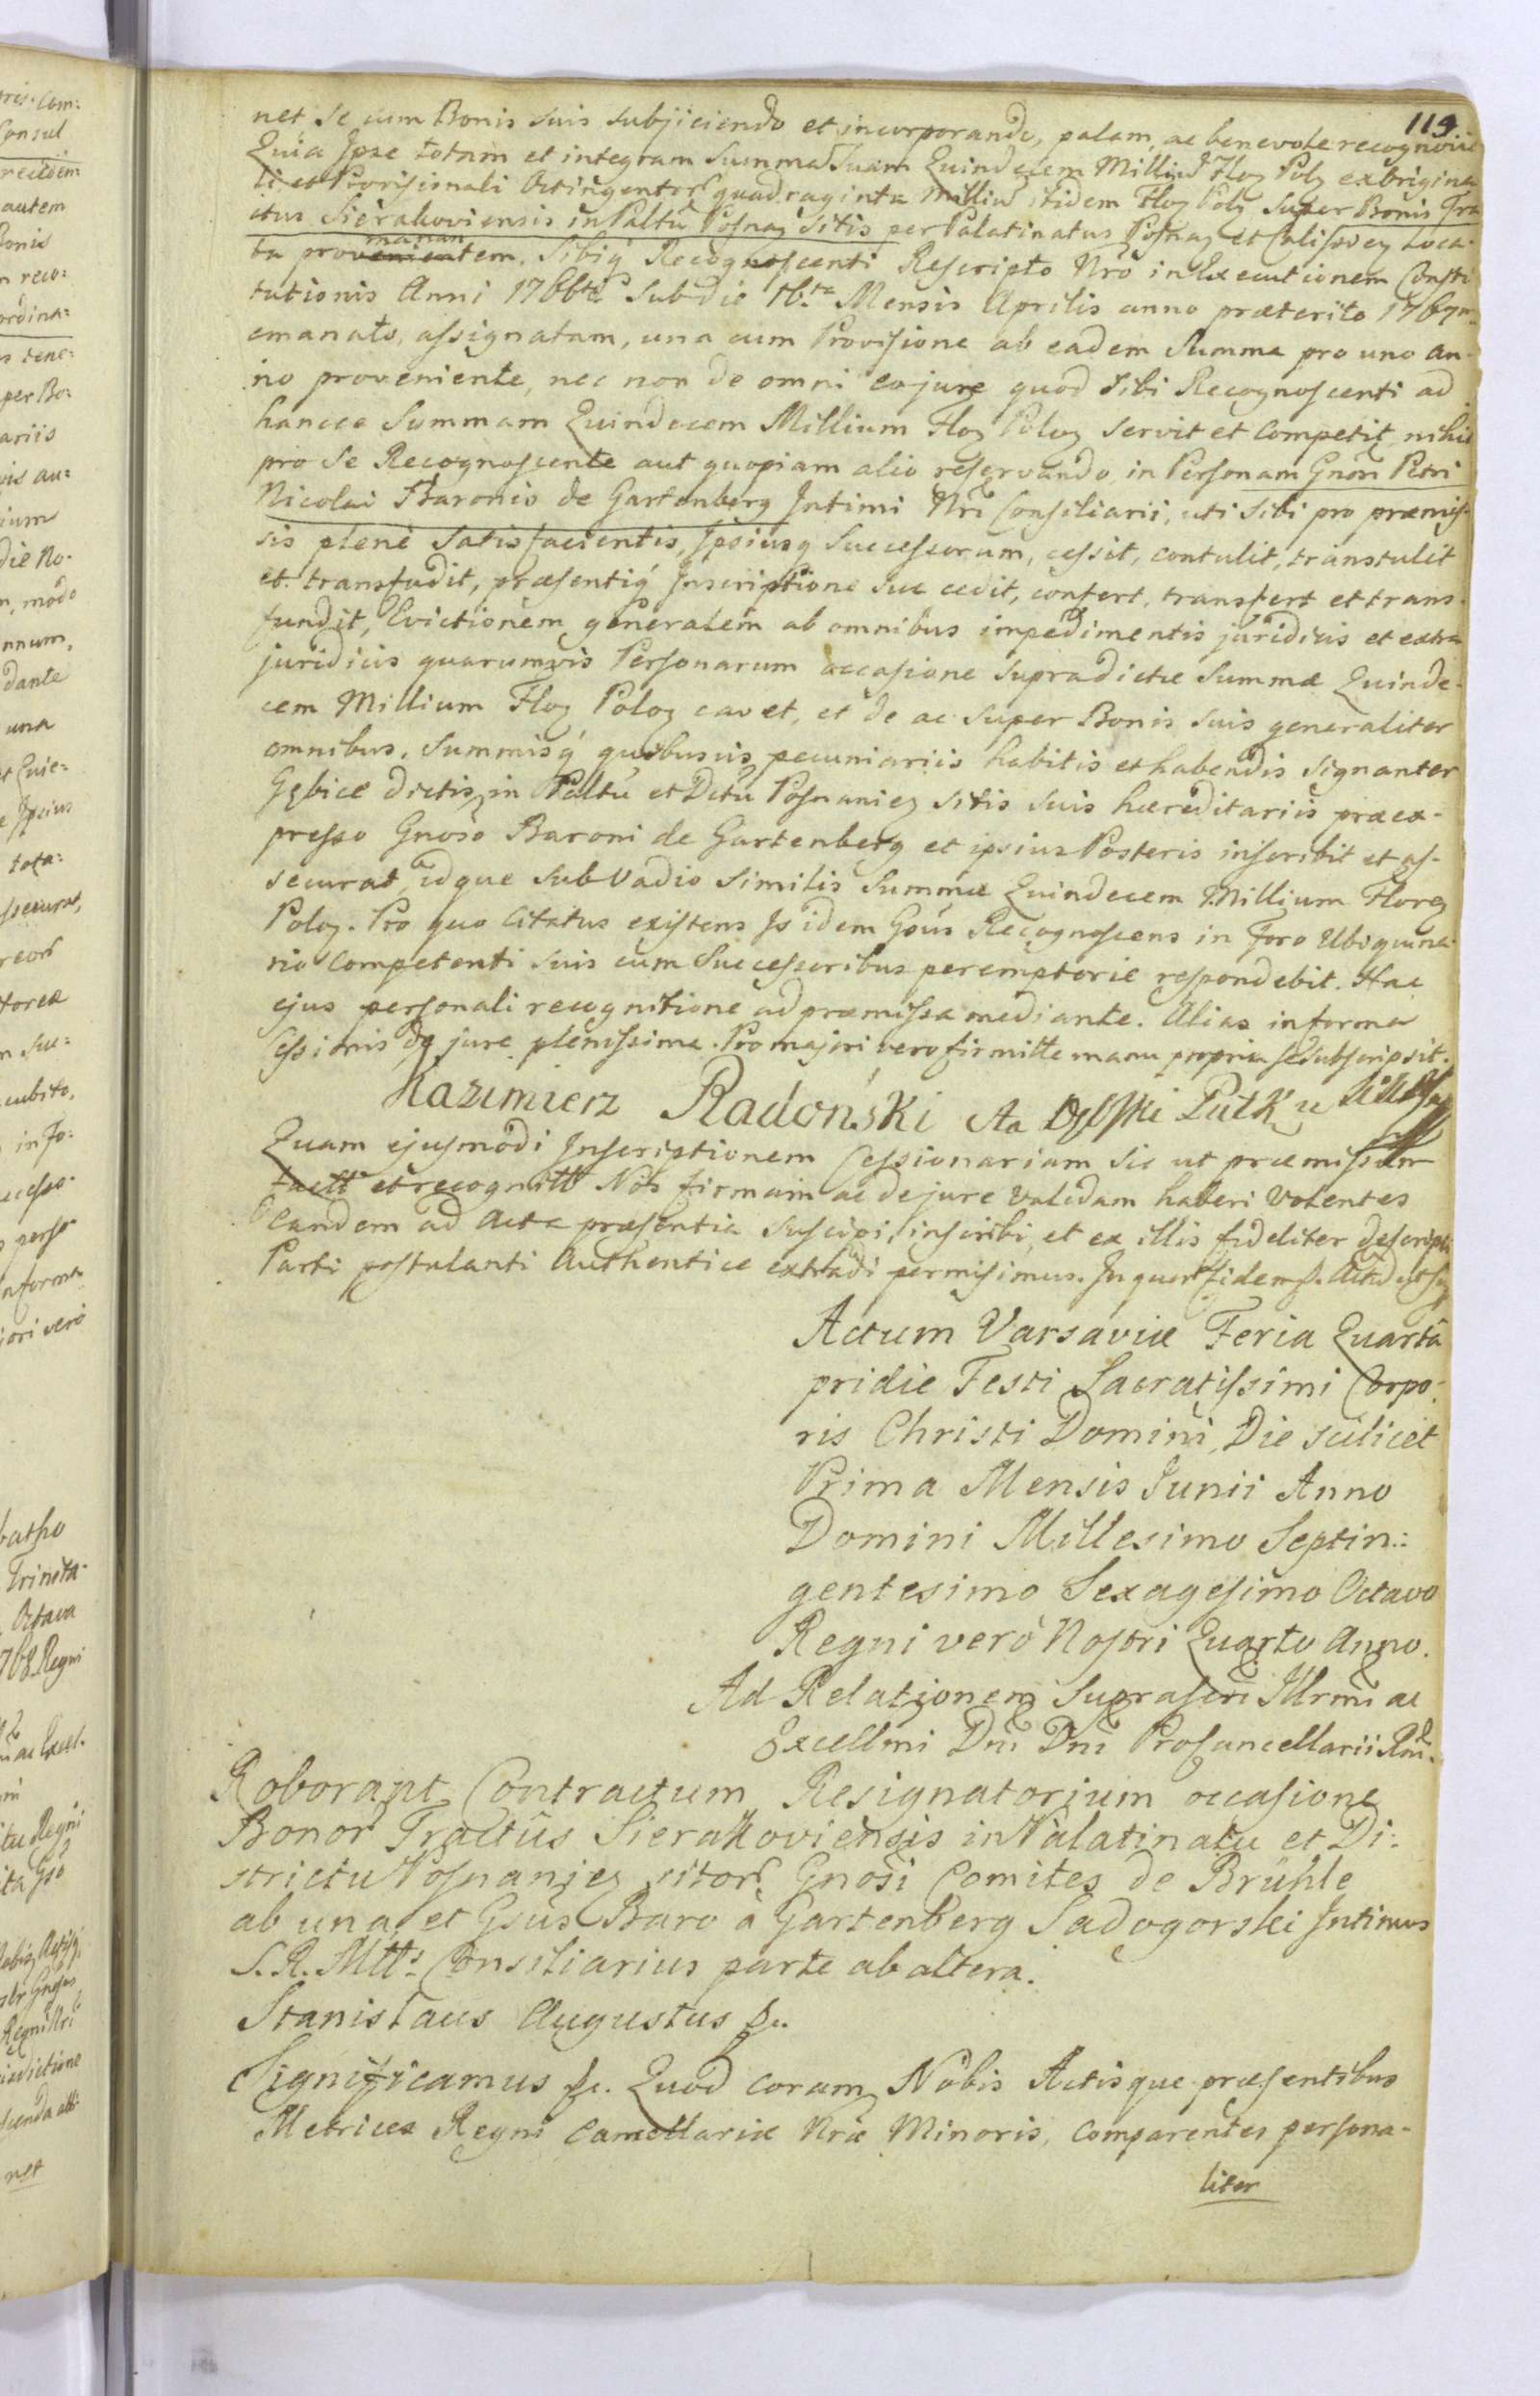 119.
net se cum Bonis suis subjiciendo et incorporando, palam, ac benevole recognovit
Quia Ipse totam et integram Summam suam Quindecem Milliū Flor Pol ex origina
li et Provisionali Octingentor quadraginta Milliū itidem Flor Pol super Bonis Tra
ctus Sierakoviensis in Paltū Posnan Sitis per Palatinatus Posnan et Calissien Loca-
ta promanantem, Sibiq Recognoscenti Rescripto Nro in Executionem Consti
tutionis Anni 1766ti Sub die 16ta Mensis Aprilis anno præterito 1767mo
emanato, assignatam, una cum Provisione ab eadem Summa pro uno an-
no proveniente, nec non de omni eo jure quod sibi Recognoscenti ad
hancce Summam Quindecem Millium Flor Polon servit et competit, nihil
pro se Recognoscente aut quopiam alio reservando, in Personam Gnosi Petri
Nicolai Baronis de Gartenberg Intimi Nri Consiliarii, uti sibi pro præmis-
sis plenè Satisfacientis, Ipsiusq Successorum, cessit, contulit, transtulit
et transfudit, præsentiq Inscriptione sua cedit, confert, transfert et trans-
fundit, Evictionem generalem ab omnibus impedimentis juridicis et extra
juridicis quarumvis Personarum occasione supradictæ Summæ Quinde-
cem Millium Flor Polon cavet, et de ac super Bonis suis generaliter
omnibus, Summisq quibusvis pecuniariis habitis et habendis signanter
Gębice dictis, in Paltū et Dctū Posnanien sitis suis hæreditariis præex-
presso Gnoso Baroni de Gartenberg et ipsius Posteris inscribit et as-
securat, idque sub Vadio similis Summæ Quindecem Millium Floren
Polon. Pro quo Citatus existens Is idem Gsus Recognoscens in foro Ubiquina-
rio Competenti suis cum Successoribus peremptorie respondebit. Hac
ejus personali recognitione ad præmissa mediante. Alias in forma
Cessionis de jure plenissima. Pro majori vero firmitte manu propria se subscripsit.
Kazimierz Radoński
Quam ejusmodi Inscriptionem Cessionariam sic ut præmissum
factt et recognitt Nos firmam ac de jure validam haberi Volentes
eandem ad Acta præsentia suscipi, inscribi, et ex illis fideliter descripti
Parti postulanti Authentice extradi permisimus. In quor fidem
Actum Varsaviæ Feria Quarta
pridie Festi Sacratissimi Corpo-
ris Christi Domini, Die scilicet
Prima Mensis Junii Anno
Domini Millesimo Septin:
gentesimo Sexagesimo Octavo
Regni verò Nostri Quarto Anno.
Ad Relationem Suprascri Illrmi ac
Excellmi Dni Dni Procancellarii Rni.
Roborant Contractum Resignatorium occasione
Bonor Tractûs Sierakoviensis in Palatinatu et Di:
strictu Posnanien sitor Gnosi Comites de Brühle
ab una, et Gsus Baro à Gartenberg Sadogorski Intimus
S. R. Mtts Consiliarius parte ab altera.
Stanislaus Augustus &c.
Significamus &c. Quod coram Nobis Actisque præsentibus
Metrices Regni Cancellariæ Nræ Minoris, Comparentes persona-
liter